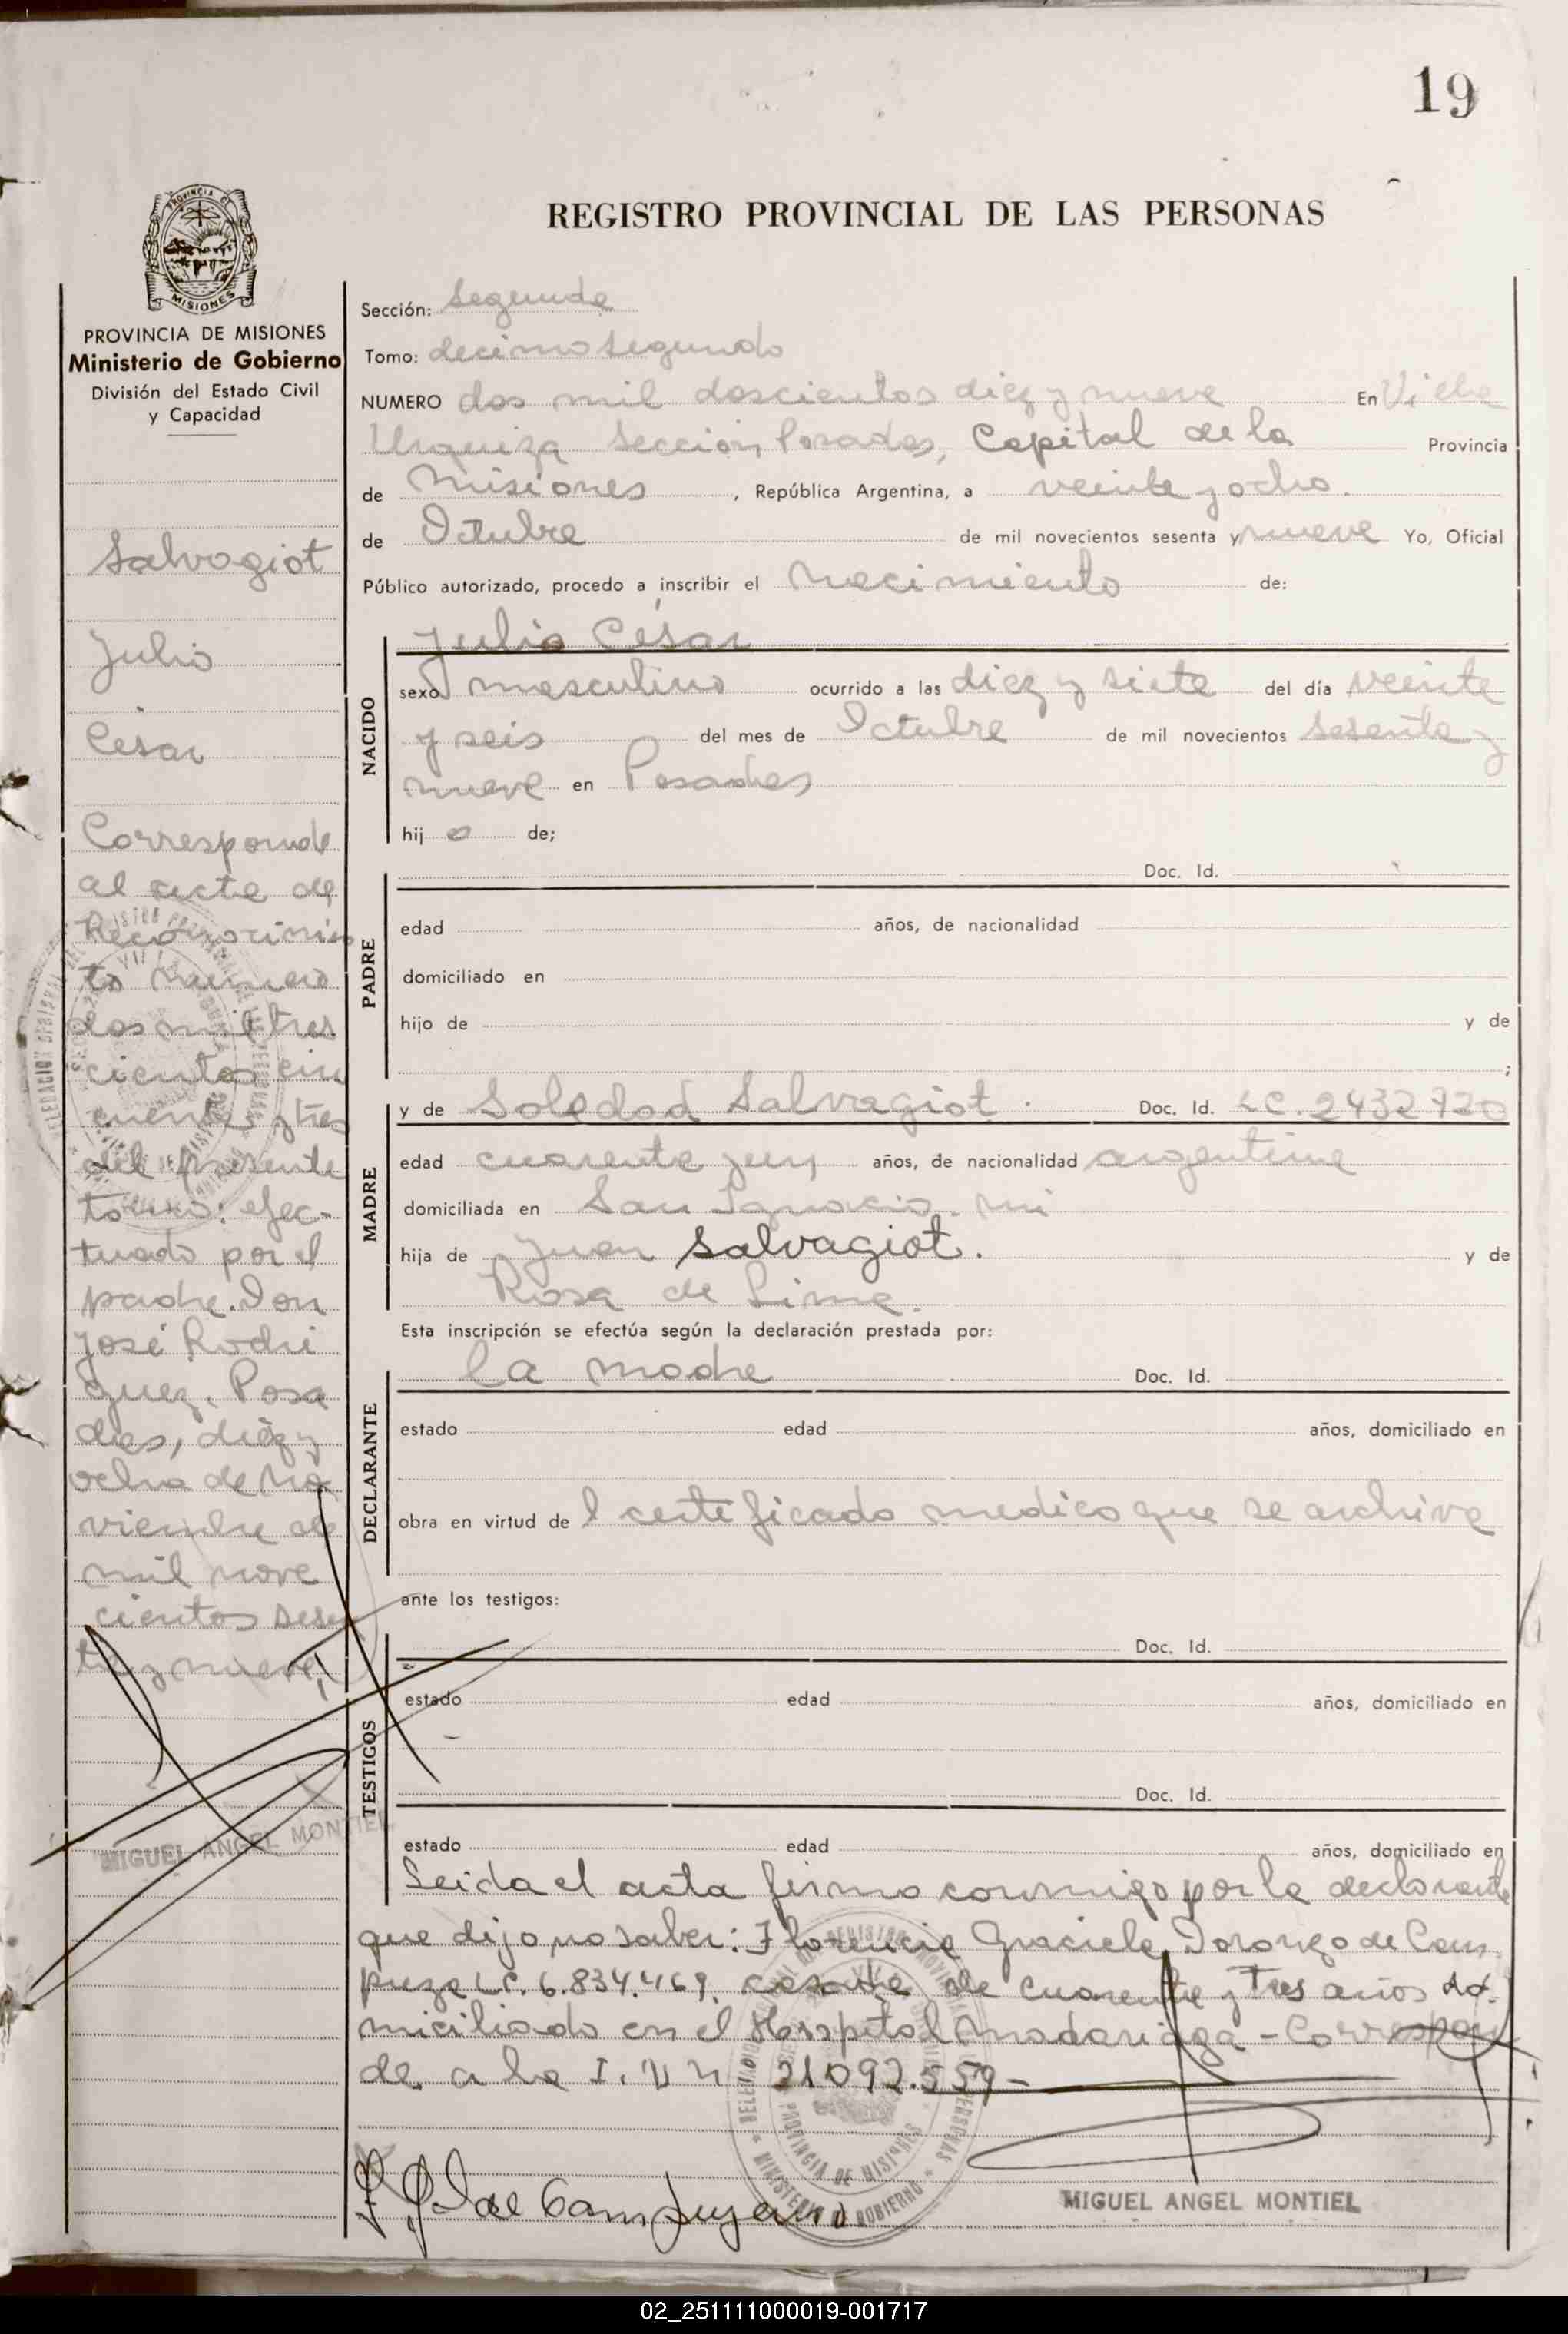 19
REGISTRO PROVINCIAL DE LAS PERSONAS
PROVINCIA DE MISIONES
Ministerio de Gobierno
División del Estado Civil
y Capacidad
Salvagiot
Julio
César
Corresponde
al acta de
Reconocimien
to numero
dos mil tres
cientos cin
cuenta y tres
del presente
tomo: efec-
tuado por el
padre. Don
José Rodri
guez. Posa
das, diez y
ocho de No
viembre de
mil nove
cientos sesen
ta y nueve
MIGUEL ANGEL MONTIEL
Sección: Segunda
Tomo: decimo segundo
NUMERO dos mil doscientos diez y nueve En Villa
Urquiza Sección Posadas, Capital de la Provincia
de Misiones , República Argentina, a veinte y ocho.
de Octubre de mil novecientos sesenta y nueve Yo, Oficial
Público autorizado, procedo a inscribir el nacimiento de:
NACIDO
Julio César
sexo masculino ocurrido a las diez y siete del día veinte
y seis del mes de Octubre de mil novecientos sesenta y
nueve en Posadas
hij o de;
PADRE
Doc. Id.
edad años, de nacionalidad
domiciliado en
hijo de y de
;
MADRE
y de Soledad Salvagiot. Doc. Id. LC. 2432720
edad cuarenta y un años, de nacionalidad argentina
domiciliada en San Ignacio. Mi
hija de Juan Salvagiot. y de
Rosa de Lima.
Esta inscripción se efectúa según la declaración prestada por:
DECLARANTE
la madre Doc. Id.
estado edad años, domiciliado en
obra en virtud de l certificado medico que se archiva
ante los testigos:
TESTIGOS
Doc. Id.
estado edad años, domiciliado en
Doc. Id.
estado edad años, domiciliado en
Leida el acta firma conmigo por la declarante
que dijo no saber: Florencia Graciela de Cam
L.C. 6.834.469. casada de cuarenta y tres años do
miciliado en el Hospital Madariaga - Correspon
de a la I. 21092.559-
MIGUEL ANGEL MONTIEL
02_251111000019-001717